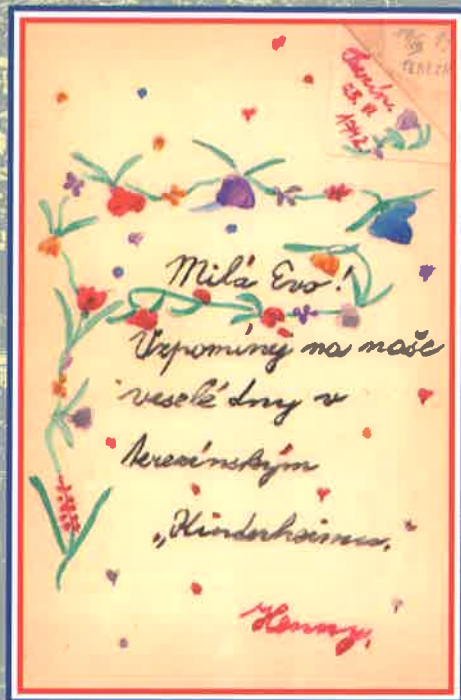 Terezín.
1942
TEREZÍN
Milá Evo!
Vzpomínej na naše
veselé dny v
terezínským
„Kinderheimu.
Henny.